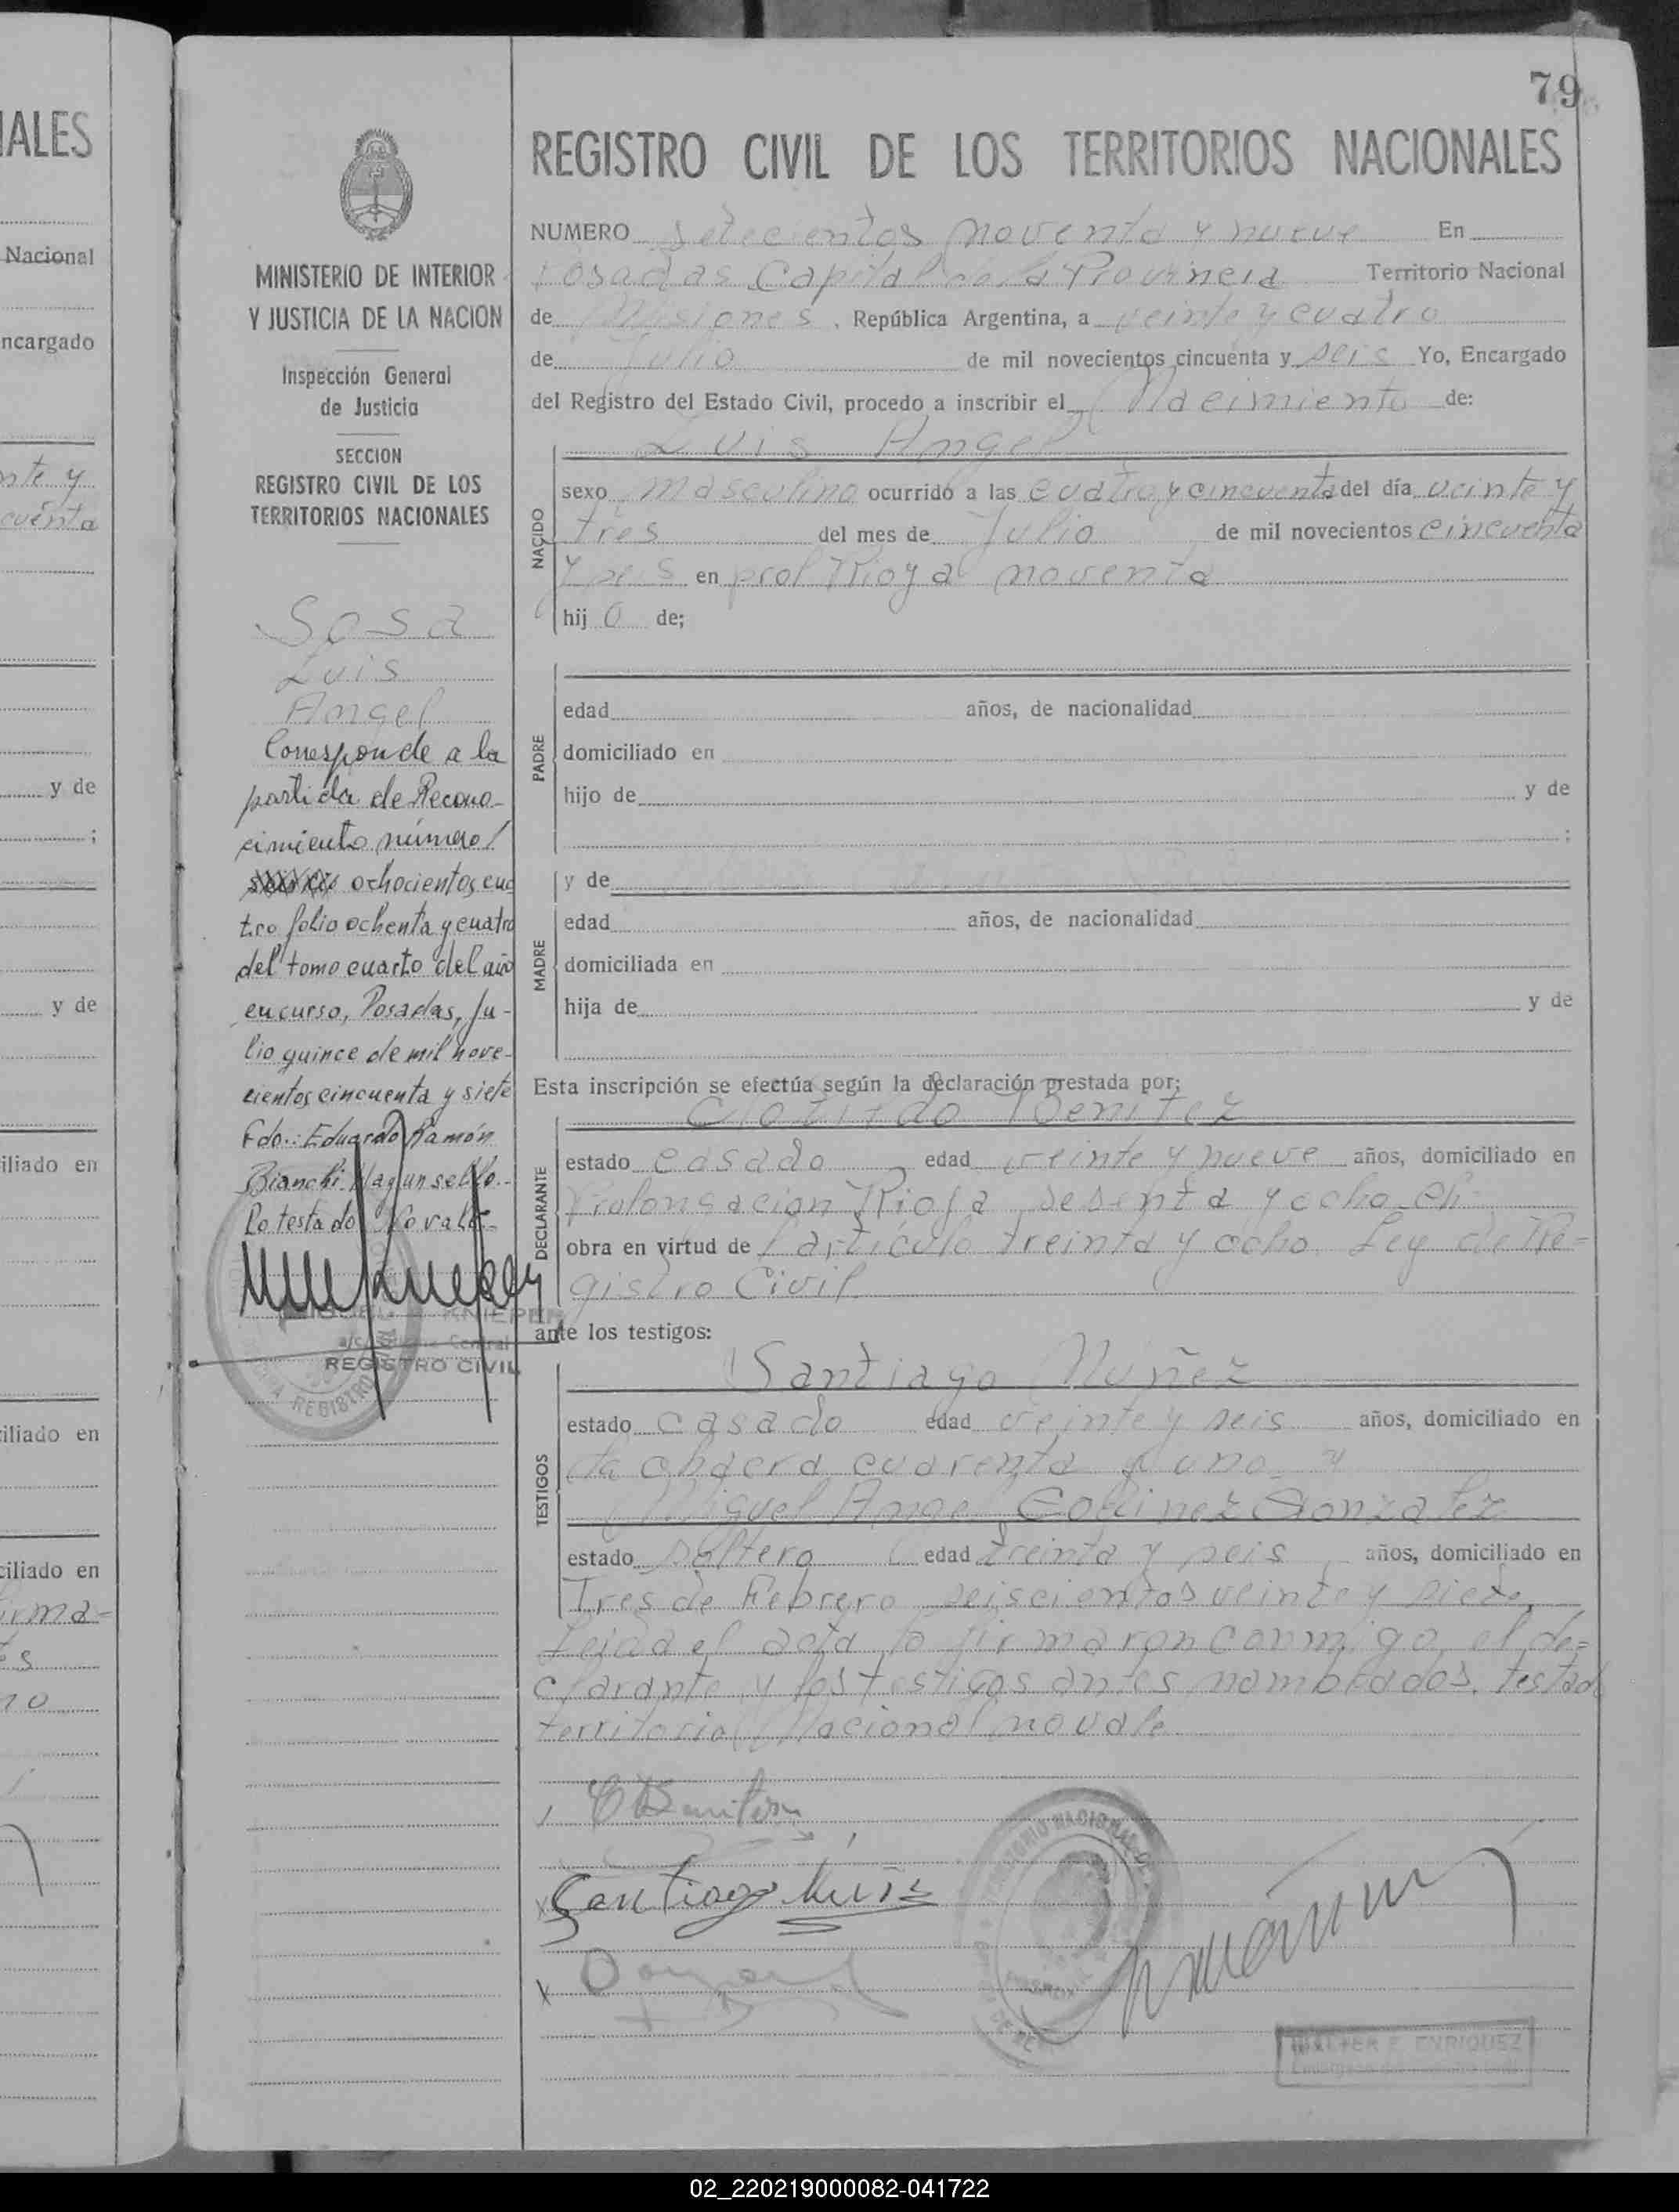 79
REGISTRO CIVIL DE LOS TERRITORIOS NACIONALES
NUMERO setecientos noventa y nueve En
Posadas Capital de la Provincia Territorio Nacional
de Misiones, República Argentina, a veinte y cuatro
de Julio de mil novecientos cincuenta y seis Yo, Encargado
del Registro del Estado Civil, procedo a inscribir el Nacimiento de:
Luis Angel
NACIDO
sexo masculino ocurrido a las cuatro y cincuenta del día veinte y
tres del mes de Julio de mil novecientos cincuenta
y seis en prol Rioja noventa
hijo de;
PADRE
edad años, de nacionalidad
domiciliado en
hijo de y de
;
MADRE
y de
edad años, de nacionalidad
domiciliada en
hija de y de
Esta inscripción se efectúa según la declaración prestada por:
Benitez
DECLARANTE
estado casado edad veinte y nueve años, domiciliado en
Prolongacion Rioja sesenta y ocho
obra en virtud del articulo treinta y ocho Ley de Re=
gistro Civil
ante los testigos:
TESTIGOS
Santiago Nuñez
estado casado edad veinte y seis años, domiciliado en
la chacra cuarenta y uno y
Miguel Angel Godinez Gonzalez
estado soltero edad treinta y seis años, domiciliado en
Tres de Febrero seiscientos veinte y siete,
Leida el acta la firmaron conmigo, el de=
clarante y los testigos antes nombrados. testado
territorio Nacional no vale
Santiago
WALTER E. ENRIQUEZ
MINISTERIO DE INTERIOR
Y JUSTICIA DE LA NACION
Inspección General
de Justicia
SECCION
REGISTRO CIVIL DE LOS
TERRITORIOS NACIONALES
Sosa
Luis
Angel
Corresponde a la
partida de Recono-
cimiento número/
ochocientos cua
tro folio ochenta y cuatro
del tomo cuarto del año
en curso, Posadas, Ju-
lio quince de mil nove-
cientos cincuenta y siete
Fdo.: Eduardo Ramón
Bianchi. Hay un sello.-
Lo testado: No vale.-
KNIEPER
Central
REGISTRO CIVIL
IALES
Nacional
ncargado
nte y
cuenta
y de
;
y de
iliado en
iliado en
ciliado en
irma=
es
no
02_220219000082-041722